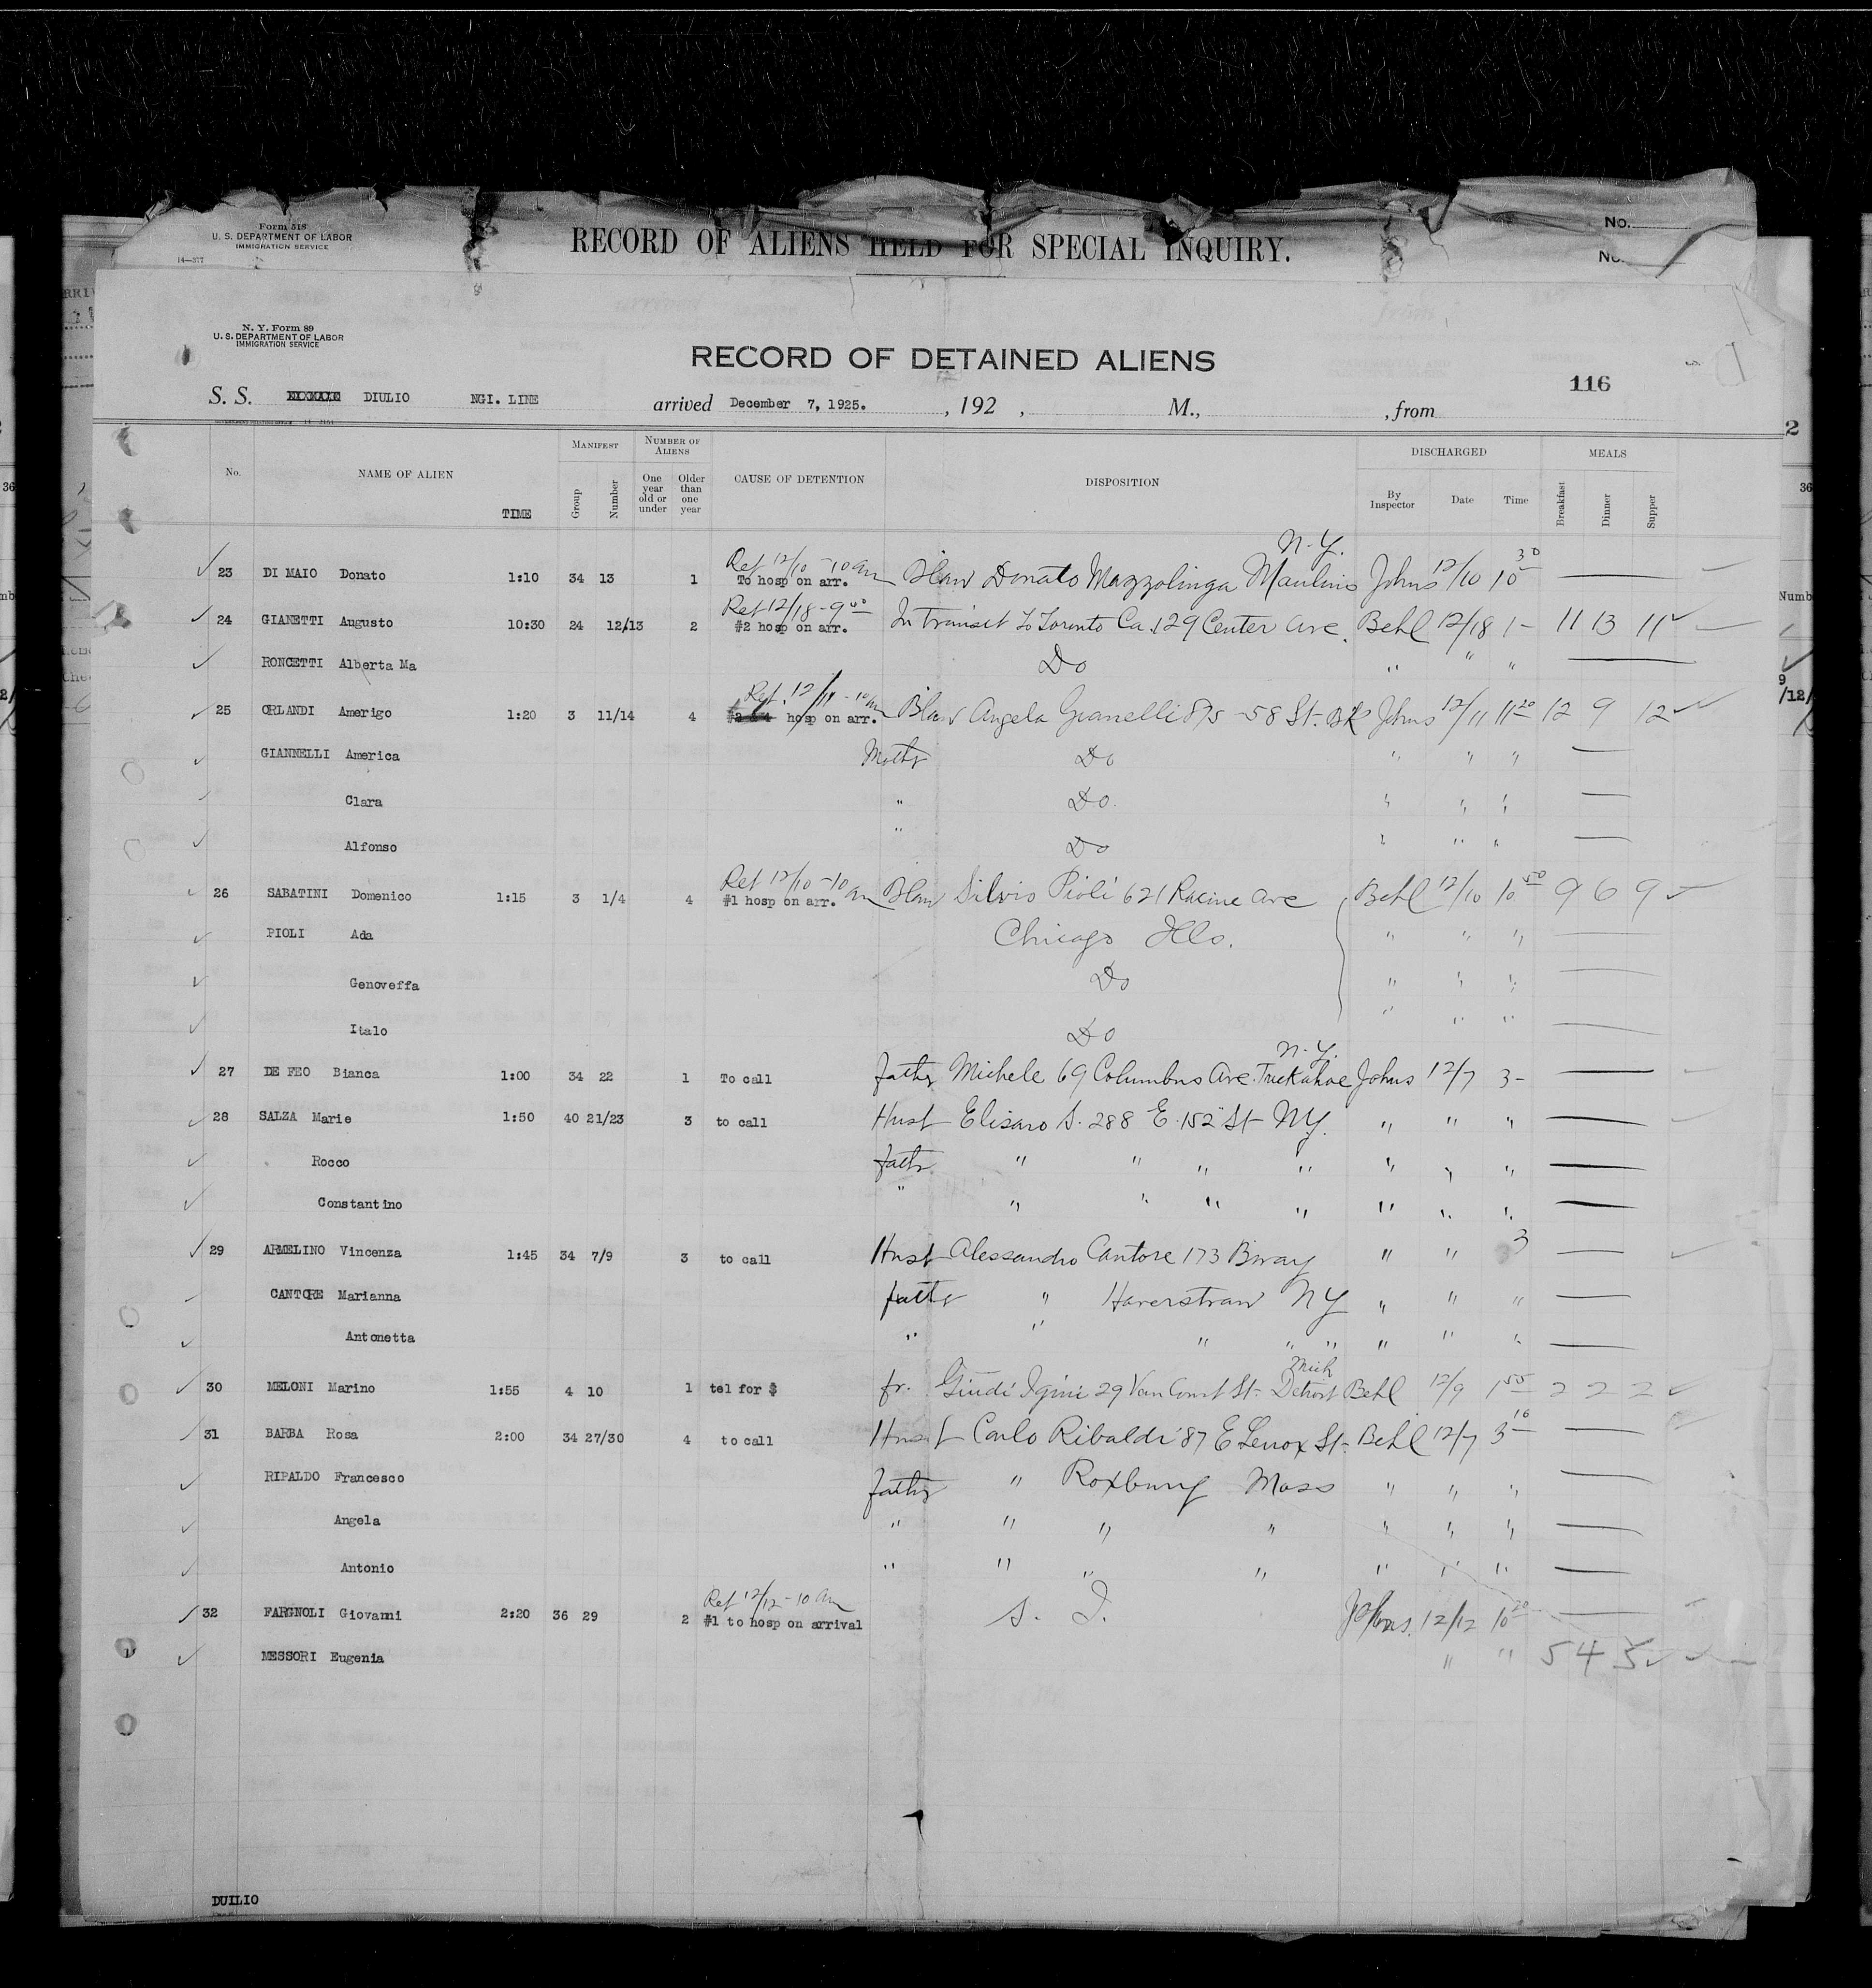 Form 518
U. S. DEPARTMENT OF LABOR
IMMIGRATION SERVICE
14—377
RECORD OF ALIENS HELD FOR SPECIAL INQUIRY.
No.
No.
N. Y. Form 89
U. S. DEPARTMENT OF LABOR
IMMIGRATION SERVICE
RECORD OF DETAINED ALIENS
116
S. S. DIULIO NGI. LINE arrived December 7, 1925. , 192 , M., , from
No. NAME OF ALIEN TIME MANIFEST Group Number NUMBER OF ALIENS One year old or under Older than one year CAUSE OF DETENTION DISPOSITION DISCHARGED By Inspector Date Time MEALS Breakfast Dinner Supper
Ret 12/10 - 10 am N.Y.
23 DI MAIO Donato 1:10 34 13 1 To hosp on arr. Donato Mazzolinga Johns 12/10 10 30
Ret 12/18 - 9 00
24 GIANETTI Augusto 10:30 24 12/13 2 #2 hosp on arr. In transit to Toronto Ca. 129 Center Ave. Behl 12/18 1- 11 13 11
RONCETTI Alberta Ma Do " " "
Ret. 12/11 - 10 am
25 ORLANDI Amerigo 1:20 3 11/14 4 hosp on arr. Blaw Angela Gianelli 875 - 58 St. BK Johns 12/11 11 20 12 9 12
GIANNELLI America Mother Do " " "
Clara " Do " " "
Alfonso " Do " " "
Ret 12/10 - 10 am
26 SABATINI Domenico 1:15 3 1/4 4 #1 hosp on arr. Blaw Silvio Pioli 621 Racine Ave Behl 12/10 10 50 9 6 9
PIOLI Ada Chicago Ills. " " "
Genoveffa Do " " "
Italo Do " " "
27 DE FEO Bianca 1:00 34 22 1 To call father Michele 69 Columbus Ave. Tuckahoe N.Y. Johns 12/7 3-
28 SALZA Marie 1:50 40 21/23 3 to call Husb Elisaro S. 288 E. 152 St NY. " " "
Rocco fathr " " " " " " "
Constantino " " " " " " " "
29 ARMELINO Vincenza 1:45 34 7/9 3 to call Husb Alessandro Cantore 173 Bway " " 3
CANTORE Marianna father " Haverstraw NY " " "
Antonetta " " " " " " " "
30 MELONI Marino 1:55 4 10 1 tel for $ fr. Giudi Igini 29 Van Court St- Detroit Mich Behl 12/9 1 55 2 2 2
31 BARBA Rosa 2:00 34 27/30 4 to call Husb Carlo Ribaldi 87 E Lenox St- Behl 12/7 3 10
RIPALDO Francesco father " Roxbury Mass " " "
Angela " " " " " " "
Antonio " " " " " " "
Ret 12/12 - 10 am
32 FARGNOLI Giovanni 2:20 36 29 2 #1 to hosp on arrival S. I. Johns. 12/12 10 20
MESSORI Eugenia " " 5 4 5
DUILIO